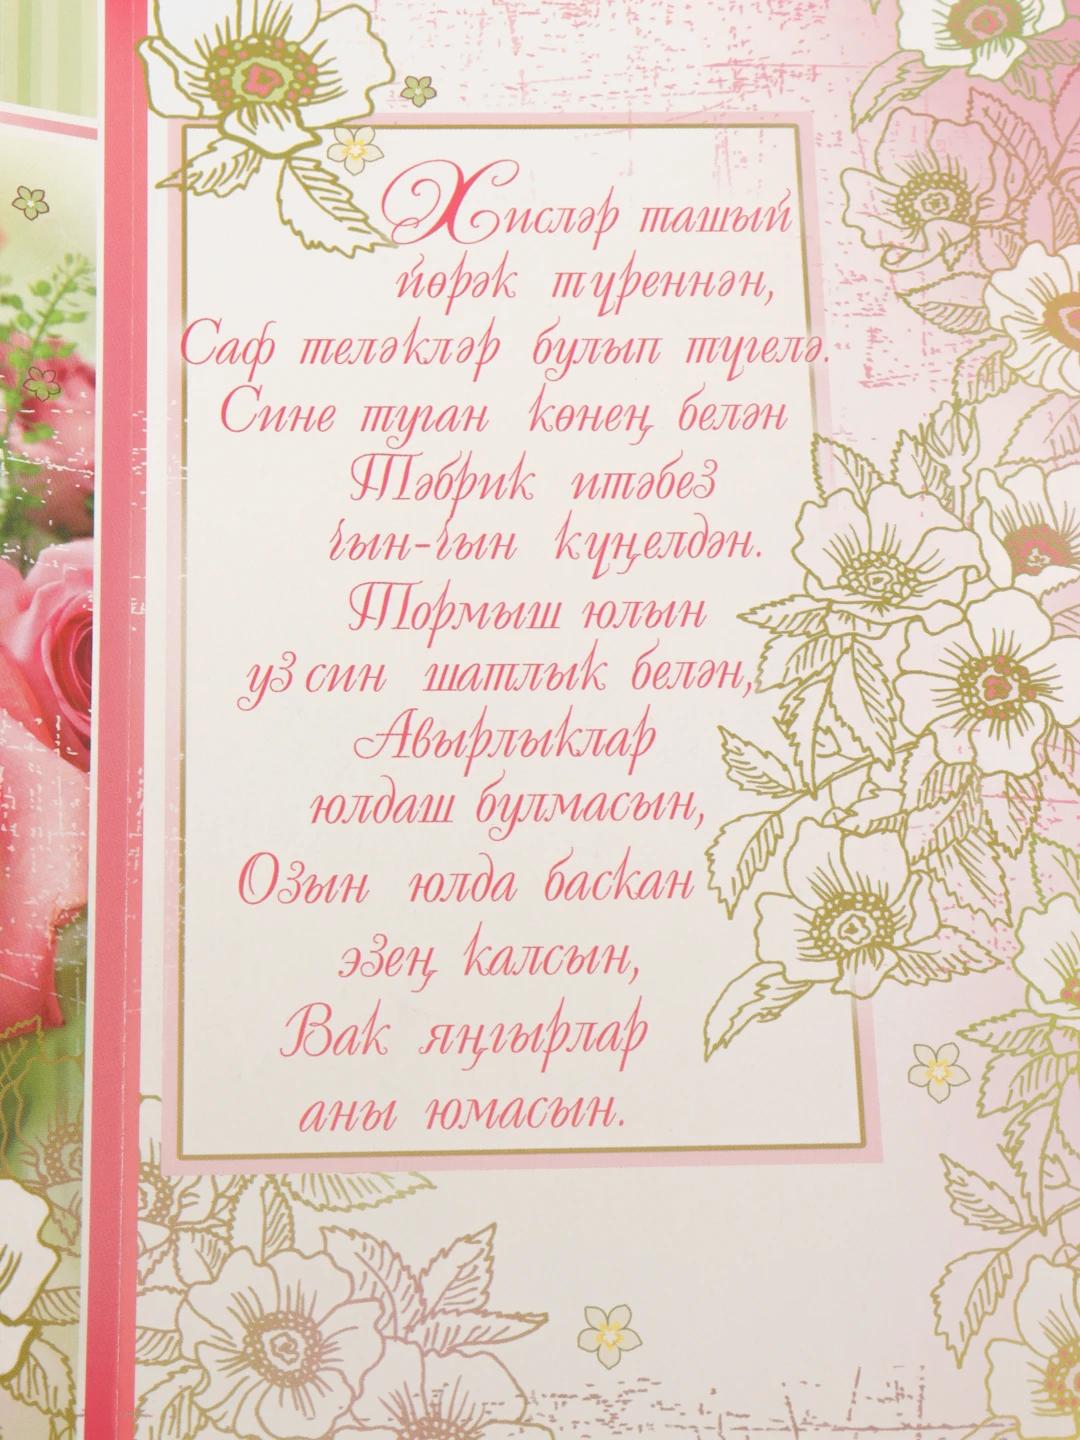 Хисләр ташый
йөрәк түреннән,
Саф теләкләр булып түгелә.
Сине туган көнең белән
Тәбрик итәбез
чын-чын күңелдән.
Тормыш юлын
уз син шатлык белән,
Авырлыклар
юлдаш булмасын,
Озын юлда баскан
эзең калсын,
Вак яңгырлар
аны юмасын.